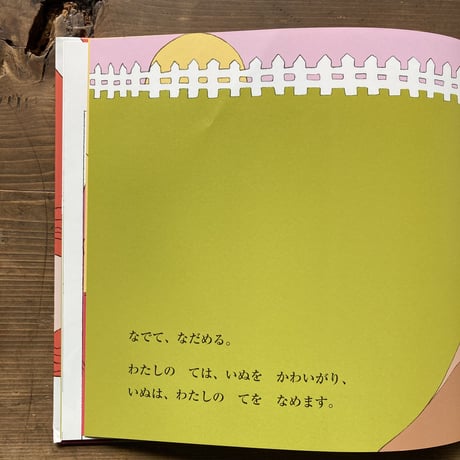 なでて、なだめる。
わたしの　ては、いぬを　かわいがり、
いぬは、わたしの　てを　なめます。